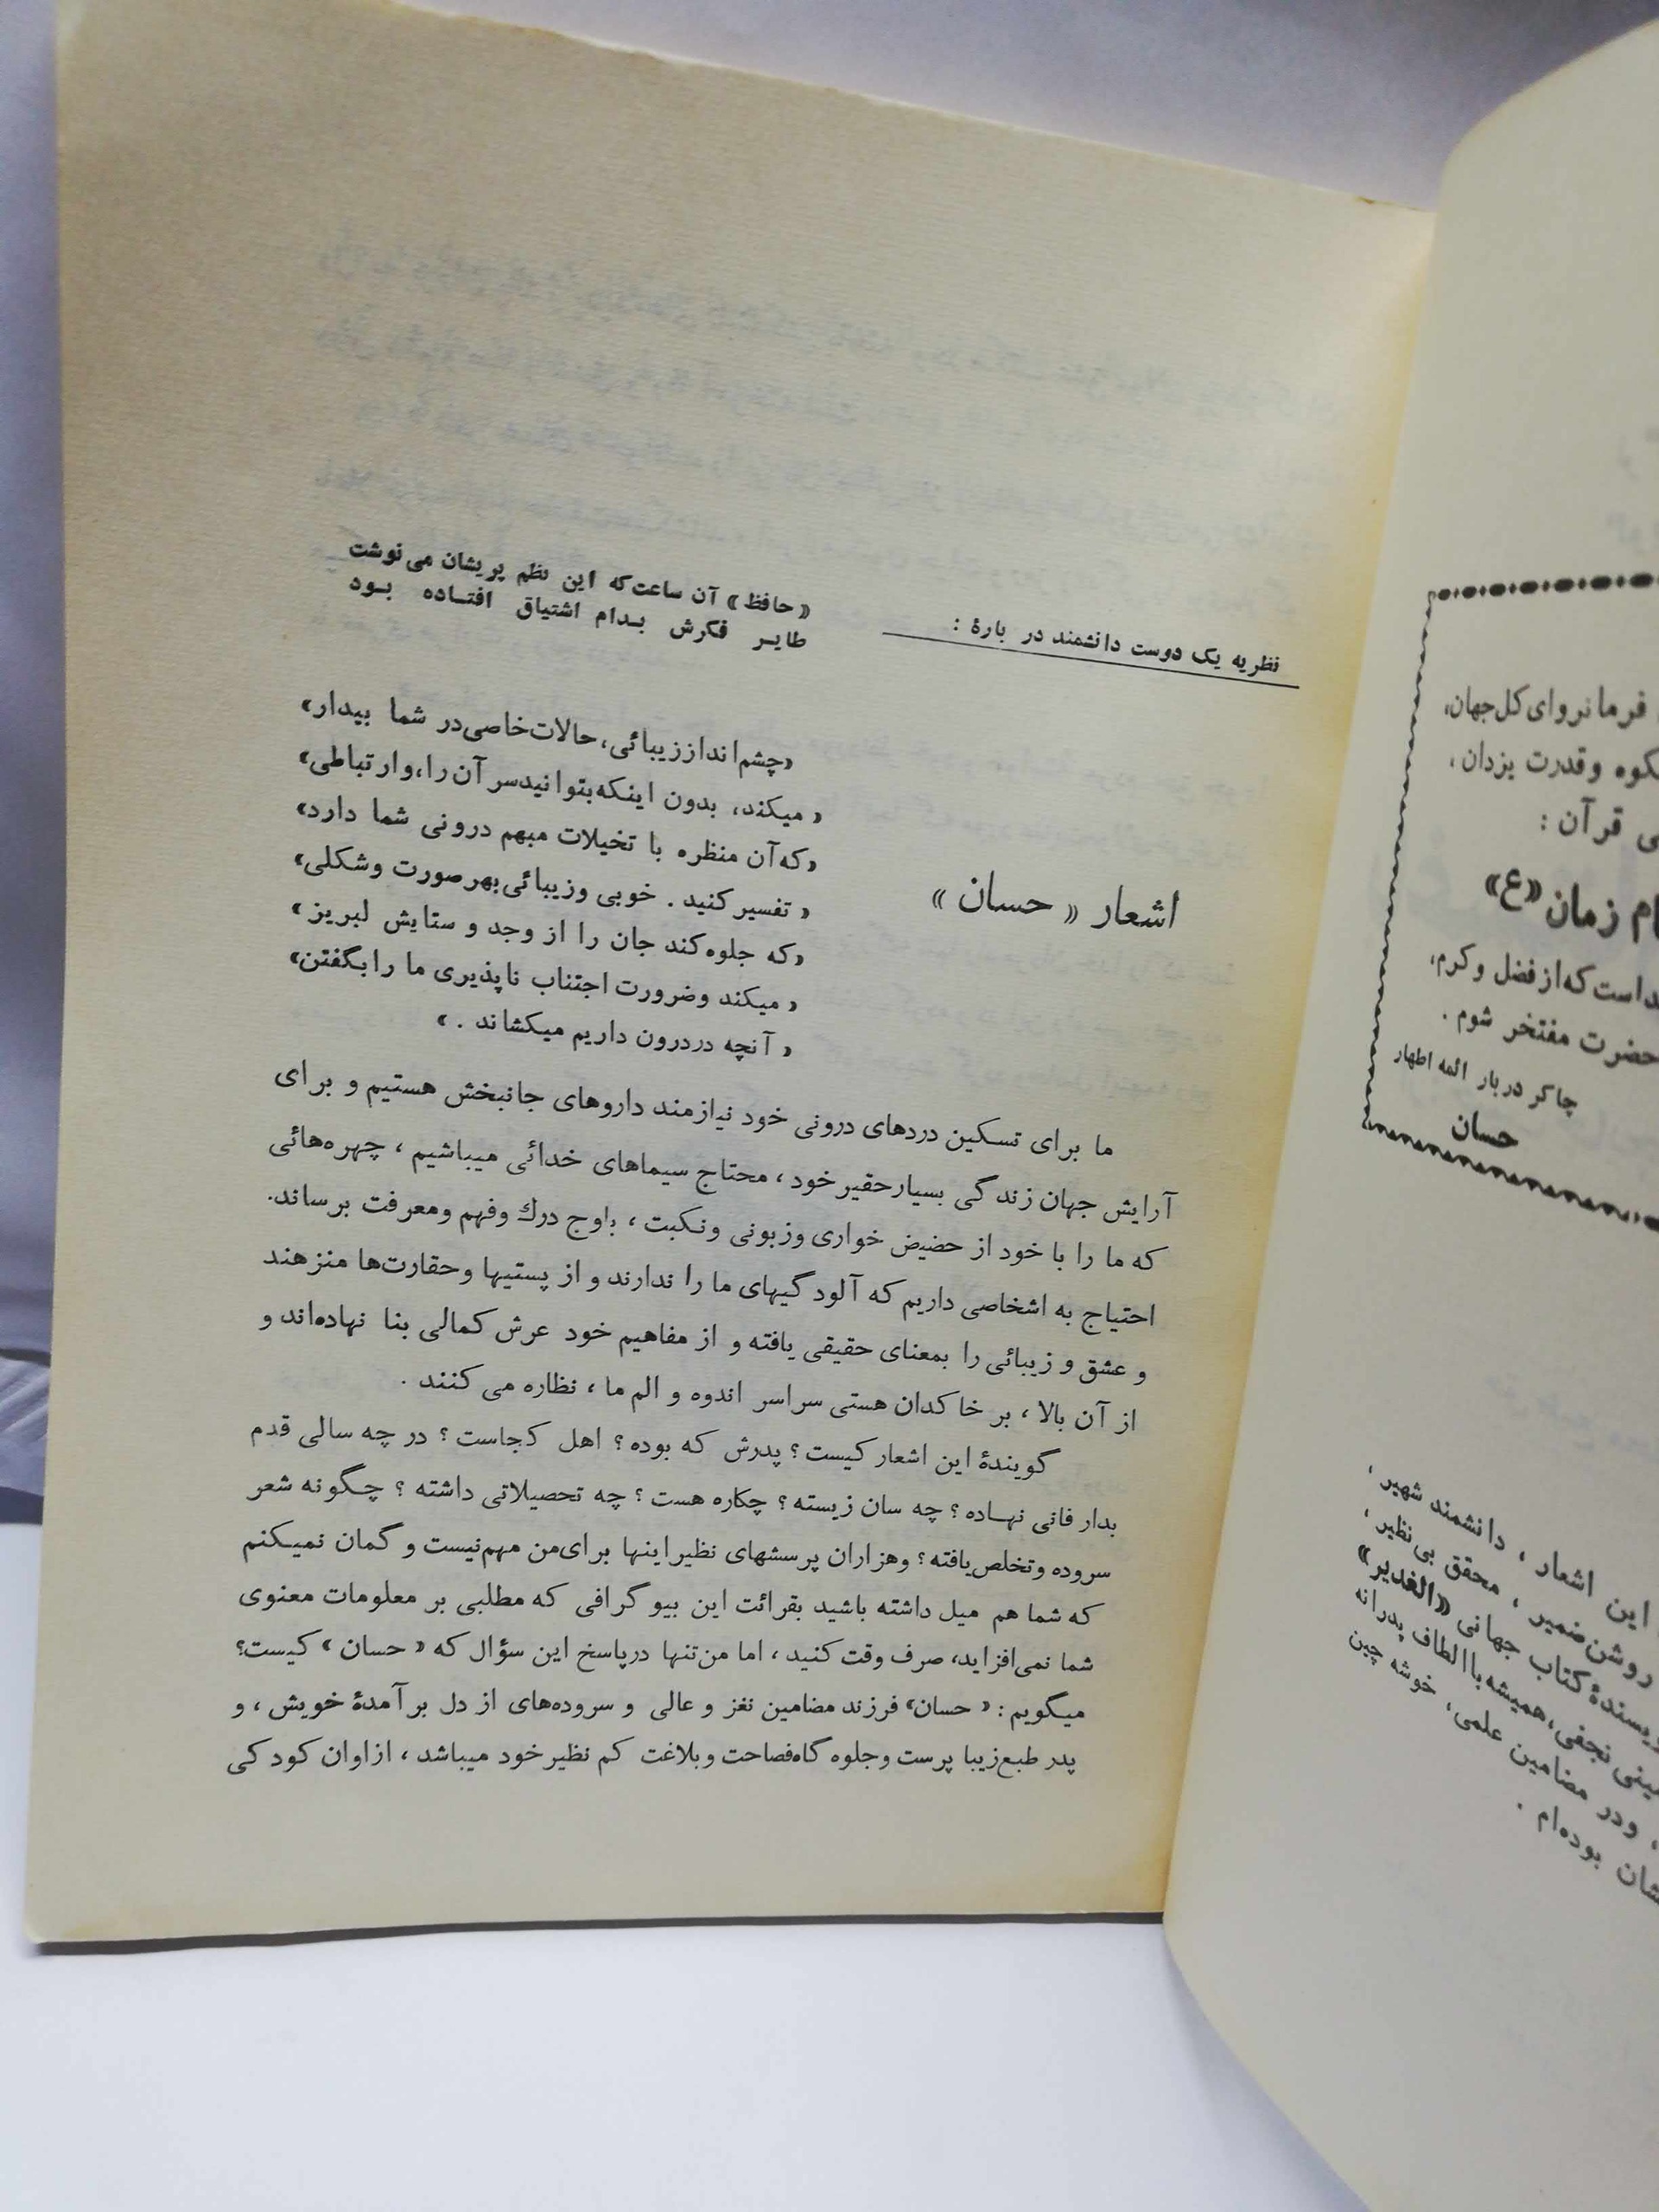 نظریه یک دوست دانشمند در بارهٔ :
«حافظ» آن ساعت‌که این نظم پریشان می‌نوشت
طایر فکرش بدام اشتیاق افتاده بود
اشعار « حسان »
«چشم‌انداز زیبائی، حالات خاصی در شما بیدار»
« میکند، بدون اینکه بتوانید سر آن را، و ارتباطی»
«که آن منظره با تخیلات مبهم درونی شما دارد»
« تفسیر کنید . خوبی و زیبائی بهر صورت و شکلی»
«که جلوه کند جان را از وجد و ستایش لبریز »
« میکند و ضرورت اجتناب ناپذیری ما را بگفتن»
« آنچه در درون داریم میکشاند . »
ما برای تسکین دردهای درونی خود نیازمند داروهای جانبخش هستیم و برای
آرایش جهان زندگی بسیار حقیر خود ، محتاج سیماهای خدائی میباشیم ، چهره‌هائی
که ما را با خود از حضیض خواری و زبونی و نکبت ، باوج درك و فهم و معرفت برساند.
احتیاج به اشخاصی داریم که آلودگیهای ما را ندارند و از پستیها و حقارت‌ها منزهند
و عشق و زیبائی را بمعنای حقیقی یافته و از مفاهیم خود عرش کمالی بنا نهاده‌اند و
از آن بالا ، بر خاکدان هستی سراسر اندوه و الم ما ، نظاره می کنند .
گویندهٔ این اشعار کیست ؟ پدرش که بوده ؟ اهل کجاست ؟ در چه سالی قدم
بدار فانی نهاده ؟ چه سان زیسته ؟ چکاره هست ؟ چه تحصیلاتی داشته ؟ چگونه شعر
سروده و تخلص یافته ؟ و هزاران پرسشهای نظیر اینها برای من مهم نیست و گمان نمیکنم
که شما هم میل داشته باشید بقرائت این بیوگرافی که مطلبی بر معلومات معنوی
شما نمی‌افزاید، صرف وقت کنید ، اما من تنها در پاسخ این سؤال که « حسان » کیست؟
میگویم : « حسان» فرزند مضامین نغز و عالی و سروده‌های از دل بر آمدهٔ خویش ، و
پدر طبع زیبا پرست و جلوه گاه فصاحت و بلاغت کم نظیر خود میباشد ، از اوان کودکی
فرمانروای کل جهان،
و قدرت یزدان ،
قرآن :
زمان «ع»
است که از فضل و کرم،
حضرت مفتخر شوم .
چاکر دربار ائمه اطهار
حسان
این اشعار ، دانشمند شهیر ،
روشن ضمیر ، محقق بی نظیر ،
کتاب جهانی «الغدیر»
نجفی، همیشه با الطاف پدرانه
، و در مضامین علمی، خوشه چین
بوده‌ام .